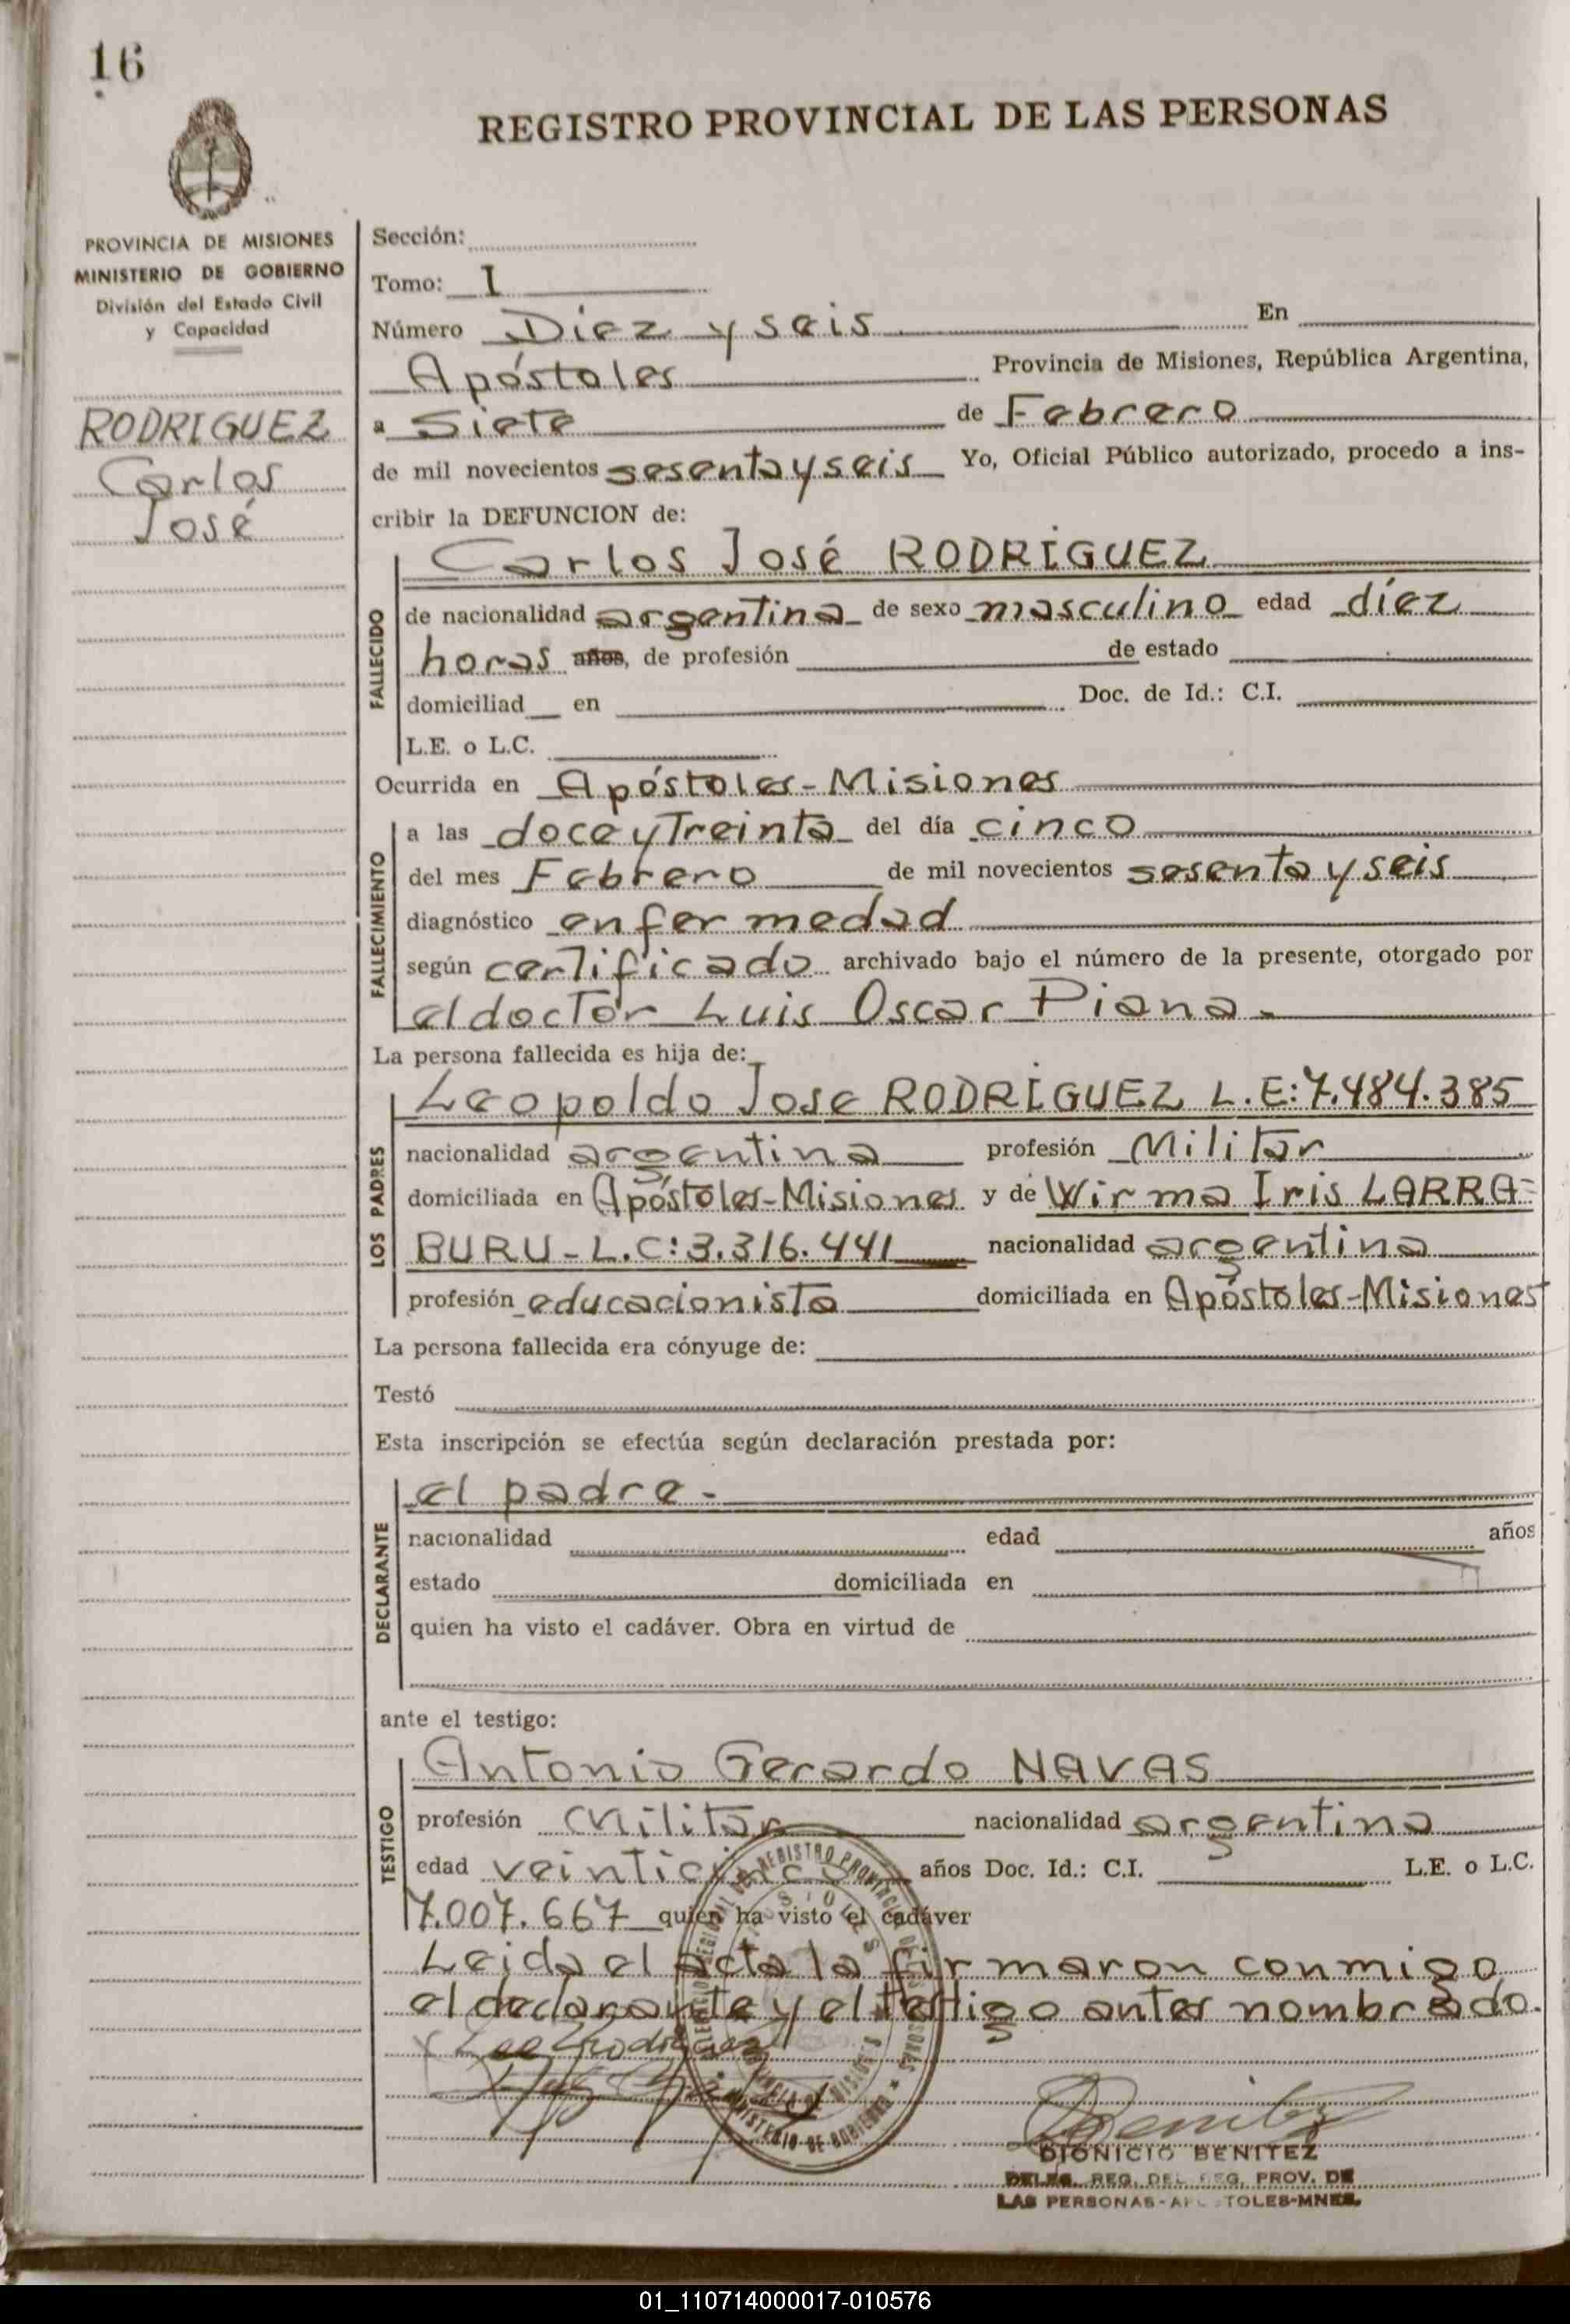 16
REGISTRO PROVINCIAL DE LAS PERSONAS
PROVINCIA DE MISIONES
MINISTERIO DE GOBIERNO
División del Estado Civil
y Capacidad
RODRIGUEZ
Carlos
José
Sección:
Tomo: I
Número Diez y seis En
Apóstoles Provincia de Misiones, República Argentina,
a Siete de Febrero
de mil novecientos sesenta y seis Yo, Oficial Público autorizado, procedo a ins-
cribir la DEFUNCION de:
FALLECIDO
Carlos José RODRIGUEZ
de nacionalidad argentina de sexo masculino edad diez
horas años, de profesión de estado
domiciliad en Doc. de Id.: C.I.
L.E. o L.C.
Ocurrida en Apóstoles-Misiones
FALLECIMIENTO
a las doce y Treinta del día cinco
del mes Febrero de mil novecientos sesenta y seis
diagnóstico enfermedad
según certificado archivado bajo el número de la presente, otorgado por
el doctor Luis Oscar Piana.
La persona fallecida es hija de:
LOS PADRES
Leopoldo Jose RODRIGUEZ L.E:7.484.385
nacionalidad argentina profesión Militar
domiciliada en Apóstoles-Misiones y de Wirma Iris LARRA=
BURU-L.C:3.316.441 nacionalidad argentina
profesión educacionista domiciliada en Apóstoles-Misiones
La persona fallecida era cónyuge de:
Testó
Esta inscripción se efectúa según declaración prestada por:
DECLARANTE
el padre.-
nacionalidad edad años
estado domiciliada en
quien ha visto el cadáver. Obra en virtud de
ante el testigo:
TESTIGO
Antonio Gerardo NAVAS
profesión Militar nacionalidad argentina
edad veinticinco años Doc. Id.: C.I. L.E. o L.C.
7.007.667 quien ha visto el cadáver
Leida el acta la firmaron conmigo
el declarante y el testigo antes nombrado.
Benitez
DIONICIO BENITEZ
DELEG. REG. DEL REG. PROV. DE
LAS PERSONAS-APOSTOLES-MNES.
01_110714000017-010576